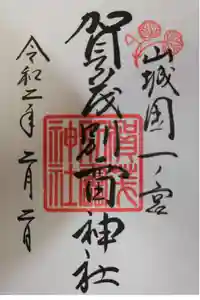 山城国一ノ宮
賀茂別雷神社
令和二年二月二日
賀茂別雷神社